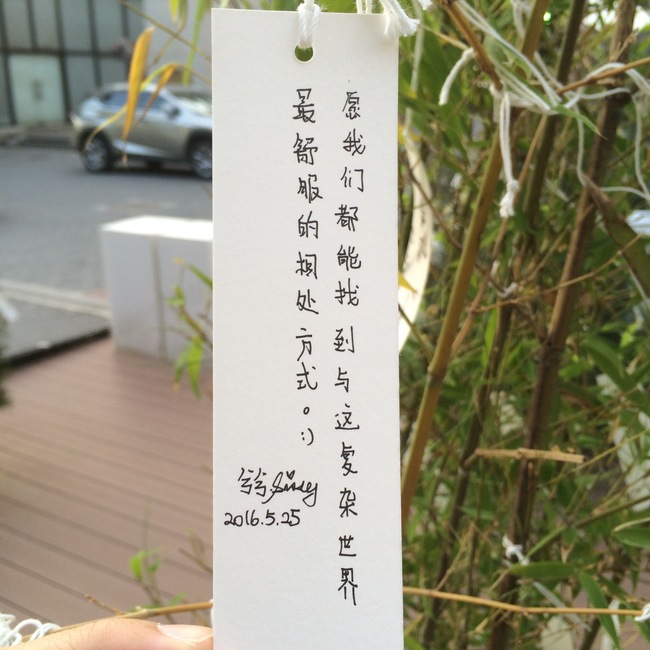 愿我们都能找到与这复杂世界
最舒服的相处方式。:)
兮兮 Sissey
2016.5.25